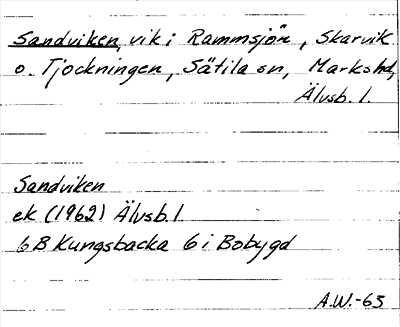 Sandviken, vik i Rammsjön, Skarvik
o. Tjockningen, Sätila sn, Marks hd,
Älvsb. l.
Sandviken
ek (1962) Älvsb. l.
6B Kungsbacka 6 i Bobygd
A.W.-65